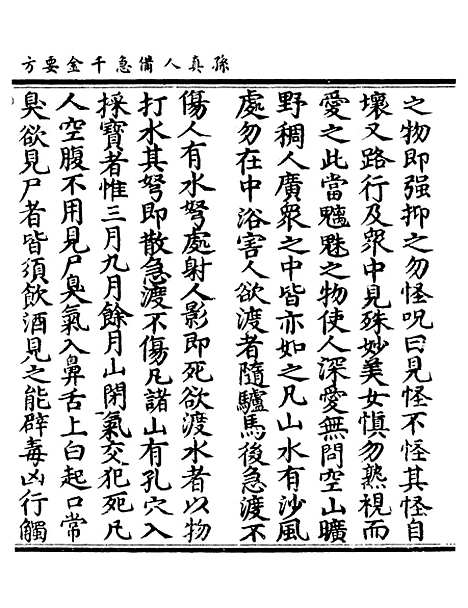 孫真人備急千金要方
之物即强抑之勿怪呪曰見怪不怪其怪自
壞又路行及衆中見殊妙美女慎勿熟視而
愛之此當魑魅之物使人深愛無問空山曠
野稠人廣衆之中皆亦如之凡山水有沙風
處勿在中浴害人欲渡者隨驢馬後急渡不
傷人有水弩處射人影即死欲渡水者以物
打水其弩即散急渡不傷凡諸山有孔穴入
採寶者惟三月九月餘月山閉氣交犯死凡
人空腹不用見尸臭氣入鼻舌上白起口常
臭欲見尸者皆須飲酒見之能辟毒凶行觸